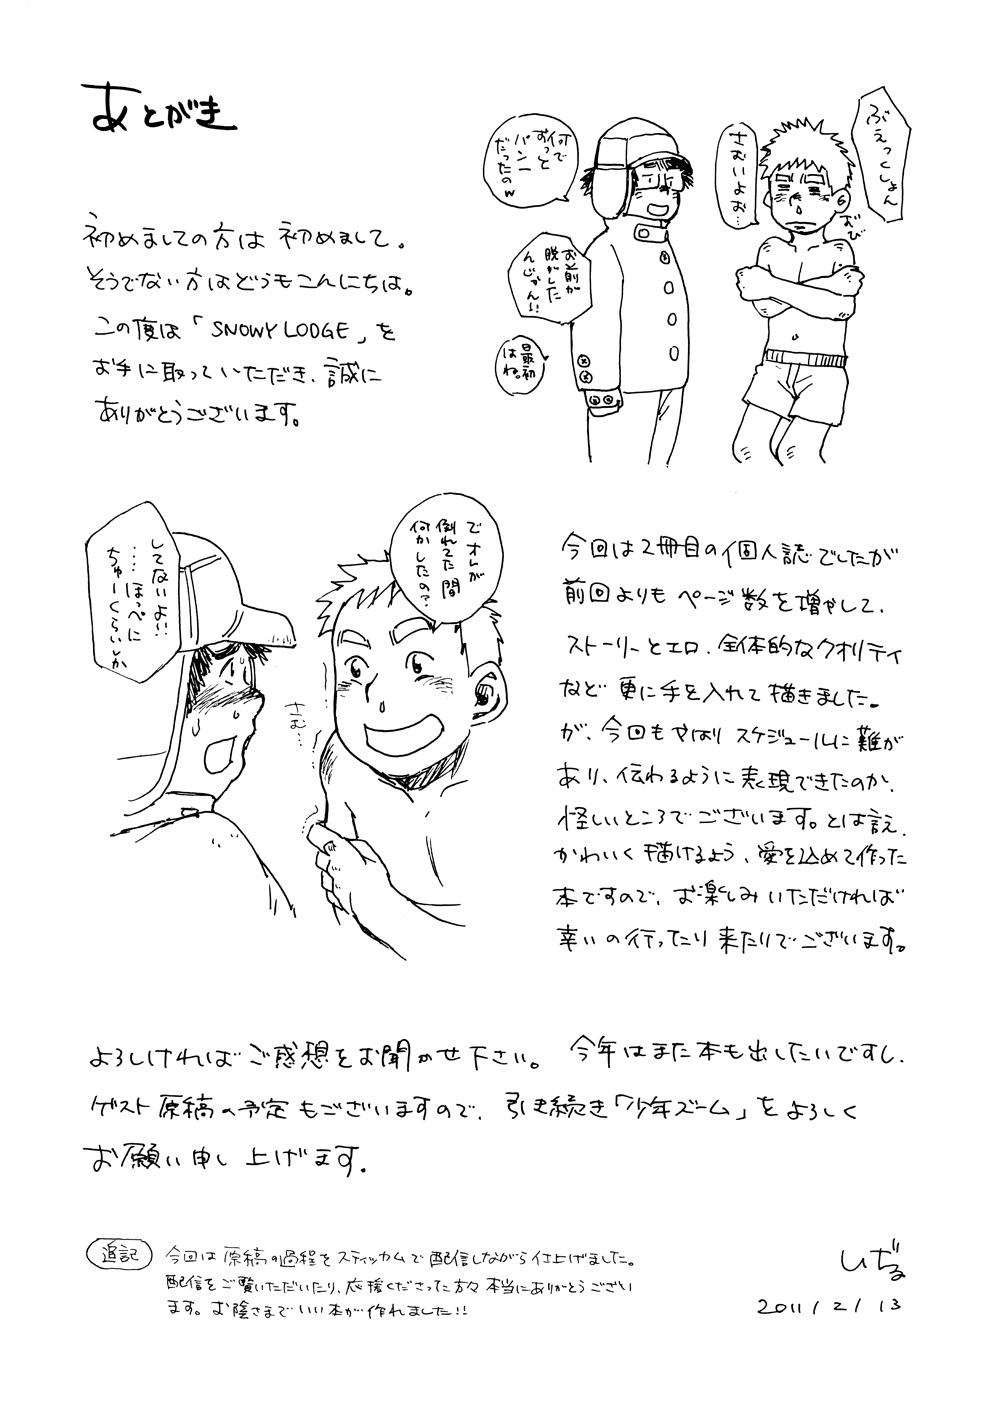 あとがき
初めましての方は 初めまして。
そうでない方はどうもこんにちは。
この度は「SNOWY LODGE」を
お手に取っていただき、誠に
ありがとうございます。
ぶえっくしょん
さむいよお…
おび
何で
おっと
パンー
だったのw
お前が
脱がした
んじゃん!!
最初
はね。
でオレが
倒れてた間
何かしたの?
してないよ!!
…ほっぺに
ちゅーくらいしか
さむ…
今回は2冊目の個人誌でしたが
前回よりもページ数を増やして、
ストーリーとエロ、全体的なクオリティ
など 更に手を入れて描きました。
が、今回もやはり スケジュールに難が
あり、伝わるように表現できたのか、
怪しいところでございます。とは言え、
かわいく描けるよう、愛を込めて作った
本ですので、お楽しみいただければ
幸いの行ったり来たりでございます。
よろしければご感想をお聞かせ下さい。 今年はまた本も出したいですし、
ゲスト原稿の予定もございますので、引き続き「少年ズーム」をよろしく
お願い申し上げます。
追記 今回は原稿の過程をスティッカムで配信しながら仕上げました。
配信をご覧いただいたり、応援くださった方々本当にありがとうござい
ます。お陰さまでいい本が作れました!!
しぢみ
2011/2/13